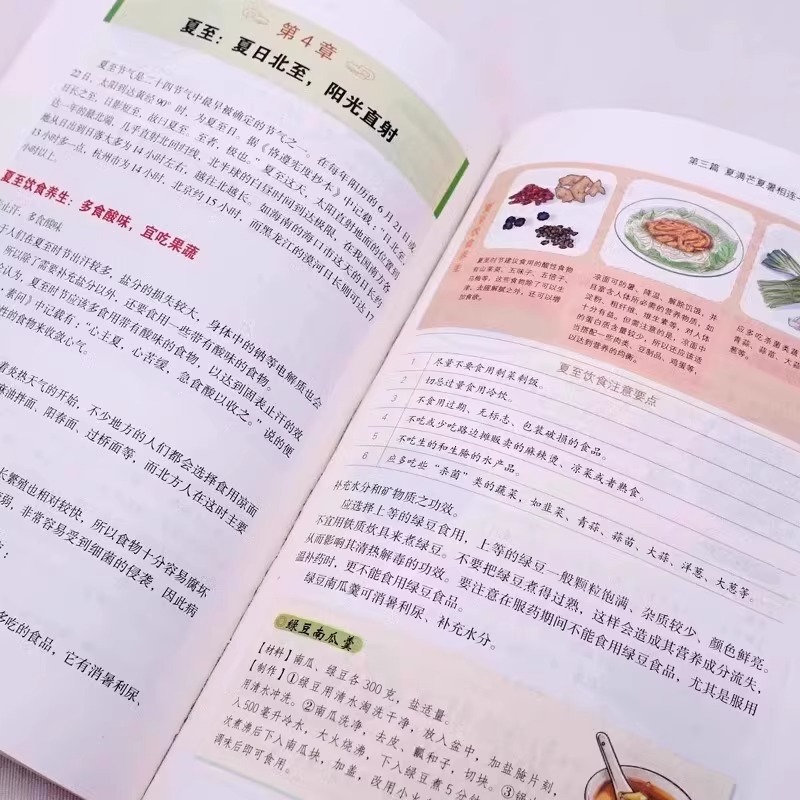 第4章
夏至：夏日北至，阳光直射
夏至节气是二十四节气中最早被确定的节气之一。在每年阳历的6月21日或
22日，太阳到达黄经90°时，为夏至日。据《恪遵宪度抄本》中记载：“日北至，
日长之至，日影短至，故曰夏至。至者，极也。”夏至这天，太阳直射地面的位置到
达一年的最北端，几乎直射北回归线，北半球的白昼时间到达极限，在我国南方各
地从日出到日落大多为14小时左右，越往北越长。如海南的海口市这天的日长约
13小时多一点，杭州市为14小时，北京约15小时，而黑龙江的漠河日长则可达17
小时以上。
夏至饮食养生：多食酸味，宜吃果蔬
止汗，多食酸味
于人们在夏至时节出汗较多，盐分的损失较大，身体中的钠等电解质也会
，所以除了需要补充盐分以外，还要食用一些带有酸味的食物。
认为，夏至时节应该多食用带有酸味的食物，以达到固表止汗的效
·素问》中记载有：“心主夏，心苦缓，急食酸以收之。”说的便
性的食物来收敛心气。
着炎热天气的开始，不少地方的人们都会选择食用凉面
麻油拌面、阳春面、过桥面等，而北方人在这时主要
长繁殖也相对较快，所以食物十分容易腐坏
弱，非常容易受到细菌的侵袭，因此病
：
多吃的食品，它有消暑利尿、
第三篇 夏满芒夏暑相连
夏至时节建议食用的酸性食物
有山茱萸、五味子、五倍子、
乌梅等，这些食物除了可以生
津、去腥解腻之外，还可以增
加食欲。
凉面可防暑、降温、解除饥饿，并
且富含人体所必需的营养物质，如
淀粉、粗纤维、维生素等，对人体
十分有益。但需注意的是，凉面中
的蛋白质含量较少，所以还应该适
当搭配一些肉类、豆制品、鸡蛋等，
以达到营养的均衡。
应多吃杀菌类蔬
青蒜、蒜苗、大蒜
葱等。
夏至饮食注意要点
1 尽量不要食用剩菜剩饭。
2 切忌过量食用冷饮。
3 不食用过期、无标志、包装破损的食品。
4 不吃或少吃路边摊贩卖的麻辣烫、凉菜或者熟食。
5 不吃生的和生腌的水产品。
6 应多吃些“杀菌”类的蔬菜，如韭菜、青蒜、蒜苗、大蒜、洋葱、大葱等。
补充水分和矿物质之功效。
应选择上等的绿豆食用，上等的绿豆一般颗粒饱满、杂质较少、颜色鲜亮。
不宜用铁质炊具来煮绿豆。不要把绿豆煮得过熟，这样会造成其营养成分流失，
从而影响其清热解毒的功效。要注意在服药期间不能食用绿豆食品，尤其是服用
温补药时，更不能食用绿豆食品。
绿豆南瓜羹可消暑利尿、补充水分。
绿豆南瓜羹
【材料】南瓜、绿豆各300克，盐适量。
【制作】①绿豆用清水淘洗干净，放入盆中，加盐腌片刻，
用清水冲洗。②南瓜洗净，去皮、瓤和子，切块。③锅
入500毫升冷水，大火烧沸，下入绿豆煮5分钟
次煮沸后下入南瓜块，加盖，改用小火
调味后即可食用。